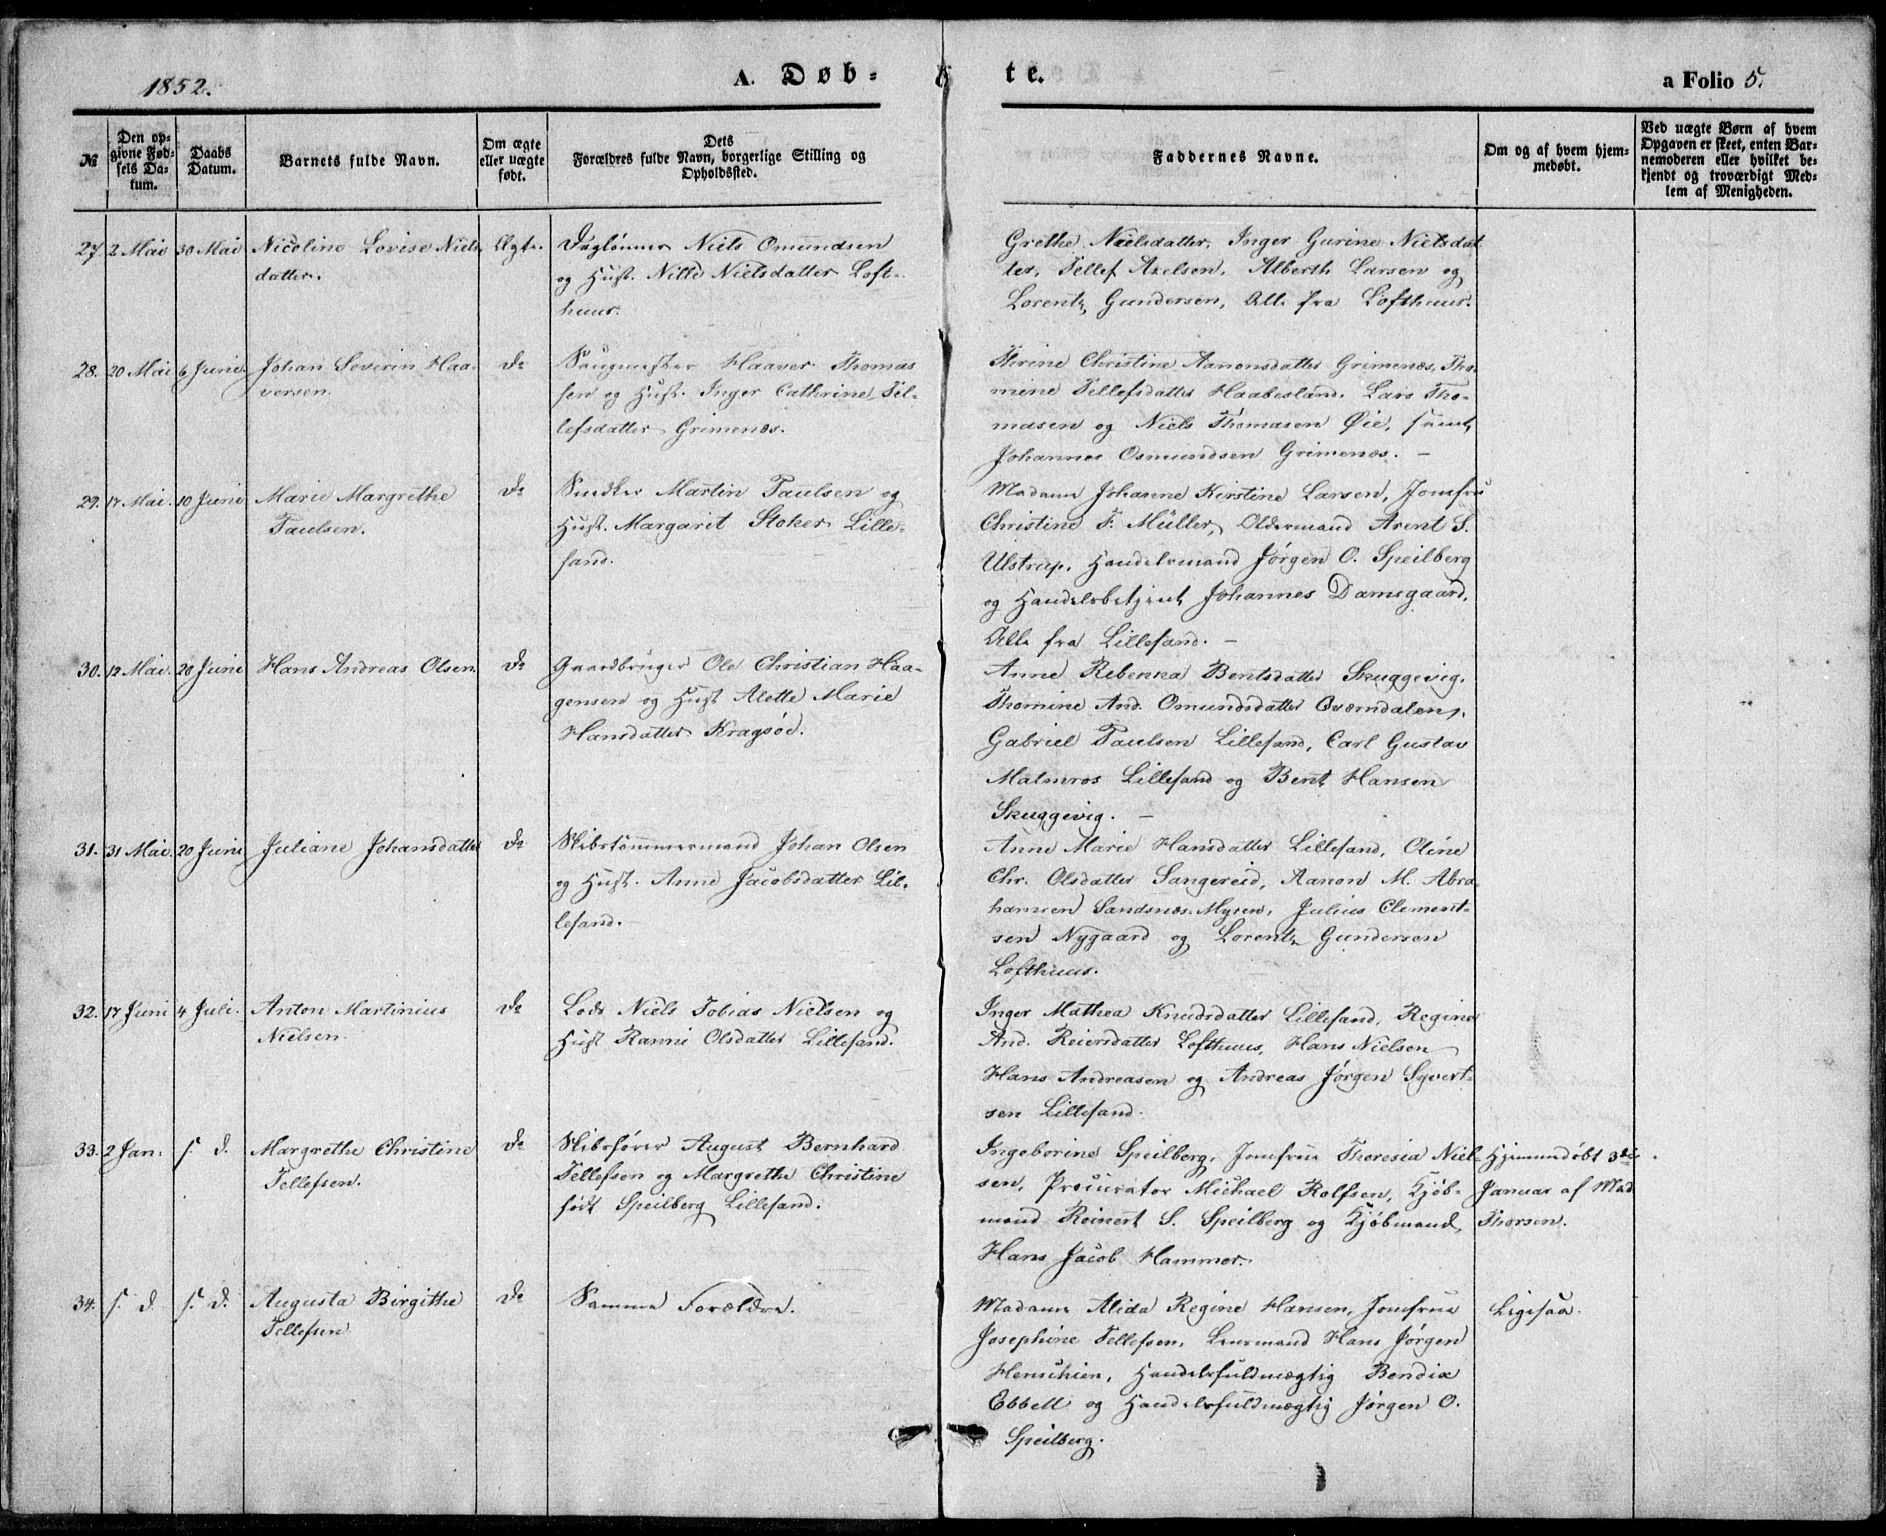 1852.
A. Døb-
te.
a Folio 5.
№
Den op-
givne Fød-
sels Da-
tum.
Daabs
Datum.
Barnets fulde Navn.
Om ægte
eller uægte
født.
Dets
Forældres fulde Navn, borgerlige Stilling og
Opholdssted.
Faddernes Navne.
Om og af hvem hjem-
medøbt.
Ved uægte Børn af hvem
Opgaven er skeet, enten Bar-
nemoderen eller hvilket be-
kjendt og troværdigt Med-
lem af Menigheden.
27. 2 Mai 30 Mai Nicoline Lovise Niels
datter.
Ægte.
Daglønner Niels Omundsen
og Hust. Nille Nielsdatter Loft-
huus.
Grethe Nielsdatter, Inger Gurine Nielsdat
ter, Tellef Axelsen, Alberth Larsen og
Lorentz Gundersen, Alle fra Lofthuus.
28. 20 Mai 6 Juni. Johan Severin Haa-
versen.
Do
Saugmester Haaver Thomas
sen og Hust. Inger Cathrine Tel-
lefsdatter Grimenæs.
Thrine Christine Aanonsdatter Grimenæs, Tho-
mine Tellefsdatter Haabesland, Lars Tho-
masen og Niels Thomasen Øie, samt
Johannes Osmundsen Grimenæs. –
29. 17 Mai. 10 Juni Marie Margrethe
Paulsen.
Do
Snedker Martin Paulsen og
Hust. Margaret Stoker Lille-
sand.
Madame Johanne Kirstine Larsen, Jomfru
Christine F. Müller, Oldermand Arent S.
Ulstrup, Handelsmand Jørgen O. Speilberg
og Handelsbetjent Johannes Damsgaard,
Alle fra Lillesand. –
30. 12 Mai. 20 Juni Hans Andreas Olsen.
Do
Gaardbruger Ole Christian Haa-
gensen og Hust Alette Marie
Hansdatter Kragsøe.
Anne Rebekka Bentsdatter Skuggevig,
Thomine And. Omundsdatter Qværndalen,
Gabriel Paulsen Lillesand, Carl Gustav
Malmros Lillesand og Bent Hansen
Skuggevig. –
31. 31 Mai. 20 Juni Juliane Johansdatter
Do
Skibstømmermand Johan Olsen
og Hust. Anne Jacobsdatter Lil-
lesand.
Anne Marie Hansdatter Lillesand, Oline
Chr. Olsdatter Sangereid, Aanon M. Abra-
hamsen Sandsnæs-Myren, Julius Clement-
sen Nygaard og Lorentz Gundersen
Lofthuus.
32. 17 Juni 4 Juli. Anton Martinius
Nielsen.
Do
Lods Niels Tobias Nielsen og
Hust Ranni Olsdatter Lillesand.
Inger Mathea Knudsdatter Lillesand, Regine
And. Reiersdatter Lofthuus, Hans Nielsen
Hans Andreasen og Andreas Jørgen Syvert-
sen Lillesand.
33. 2 Jan. s. d. Margrethe Christine
Tellefsen.
Do
Skibsfører August Bernhard
Tellefsen og Margrethe Christine
født Speilberg Lillesand.
Ingeborine Speilberg, Jomfrue Theresia Niel-
sen, Procurator Michael Rolfsen, Kjøb-
mand Reinert S. Speilberg og Kjøbmand
Hans Jacob Hammer.
Hjemmedøbt 3die
Januar af Mad
Thorsen.
34. s. d. s. d. Augusta Birgithe
Tellefsen
Do
Samme Forældre.
Madame Alida Regine Hansen, Jomfrue
Josephine Tellefsen, Lensmand Hans Jørgen
Henschien, Handelsfuldmægtig Bendix
Ebbell og Handelsfuldmægtig Jørgen O.
Speilberg.
Ligesaa.